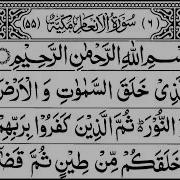 (٦) سُوْرَةُ الْاَنْعَامِ مَكِّيَّةٌ (٥٥)
سْمِ اللهِ الرَّحْمٰنِ الرَّحِيْمِ
ذِيْ خَلَقَ السَّمٰوٰتِ وَالْاَرْضَ
النُّوْرَ ؕ ثُمَّ الَّذِيْنَ كَفَرُوْا بِرَبِّهِمْ
خَلَقَكُمْ مِّنْ طِيْنٍ ثُمَّ قَضٰ